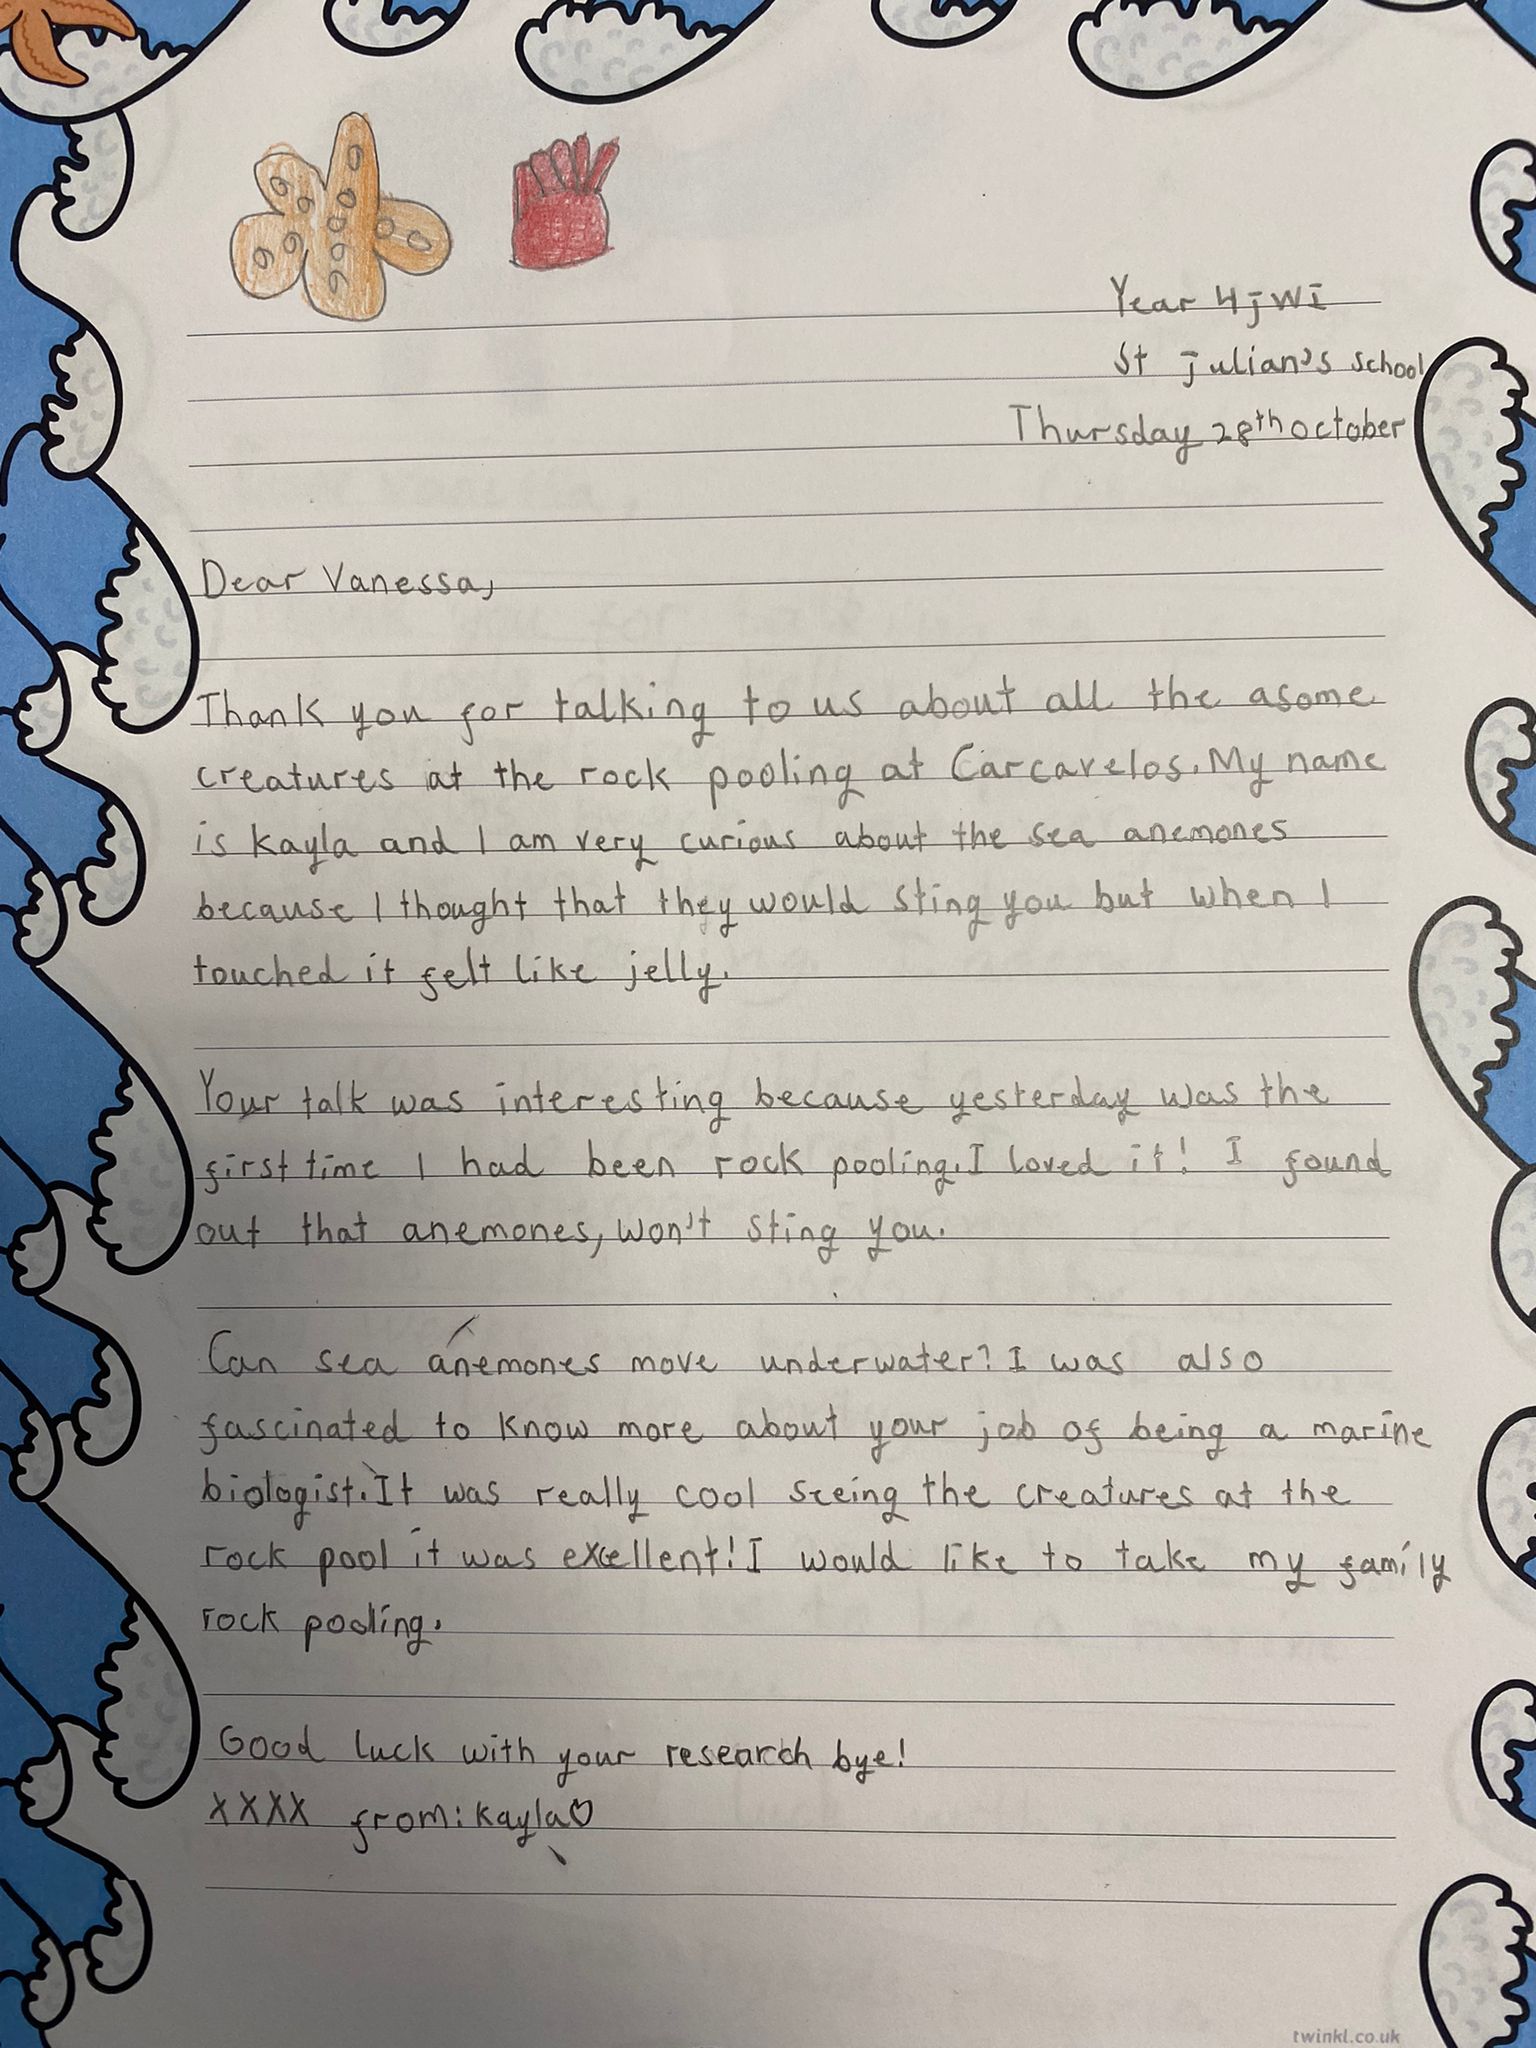 Year 4JWI
St Julian's School
Thursday 28th October
Dear Vanessa,
Thank you for talking to us about all the asome
creatures at the rock pooling at Carcavelos. My name
is Kayla and I am very curious about the sea anemones
because I thought that they would sting you but when I
touched it felt like jelly.
Your talk was interesting because yesterday was the
first time I had been rock pooling. I loved it! I found
out that anemones, won't sting you.
Can sea anemones move underwater? I was also
fascinated to know more about your job of being a marine
biologist. It was really cool seeing the creatures at the
rock pool it was excellent! I would like to take my family
rock pooling.
Good luck with your research bye!
XXXX from: Kayla♡
twinkl.co.uk